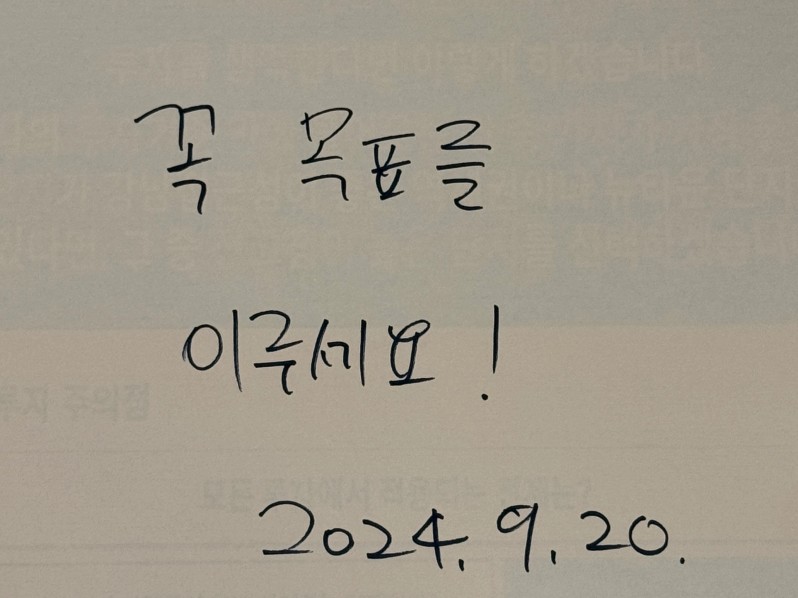 꼭 목표를
이루세요!
2024. 9. 20.